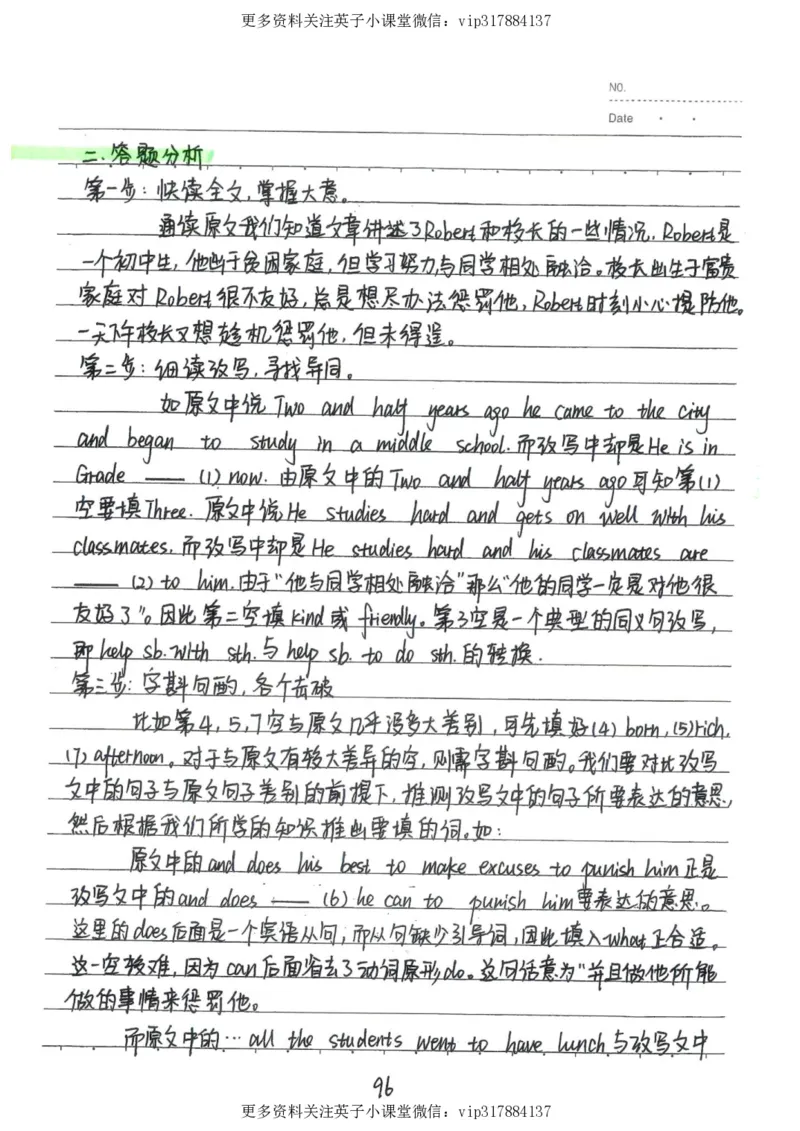 更多资料关注英子小课堂微信：vip317884137
NO.
Date
二、答题分析
第一步：快读全文，掌握大意。
通读原文我们知道文章讲述了Robert和校长的一些情况，Robert是
一个初中生，他出于贫困家庭，但学习努力，与同学相处融洽。校长出生于富贵
家庭对Robert很不友好，总是想尽办法惩罚他，Robert时刻小心提防他。
一天下午校长又想趁机惩罚他，但未得逞。
第二步：细读改写，寻找异同。
如原文中说Two and half years ago he came to the city
and began to study in a middle school.而改写中却是He is in
Grade ___ (1) now. 由原文中的Two and half years ago可知第(1)
空要填Three. 原文中说He studies hard and gets on well with his
classmates,而改写中却是He studies hard and his classmates are
___ (2) to him.由于"他与同学相处融洽"那么"他的同学一定是对他很
友好了"。因此第二空填kind或friendly。第3空是一个典型的同义句改写，
即help sb. with sth.与help sb. to do sth.的转换.
第三步：字斟句酌，各个击破
比如第4，5，7空与原文几乎没多大差别，可先填好(4) born, (5)rich,
(7) afternoon。对于与原文有较大差异的空，则需字斟句酌。我们要对比改写
文中的句子与原文句子差别的前提下，推测改写文中的句子所要表达的意思，
然后根据我们所学的知识推出要填的词。如：
原文中的and does his best to make excuses to punish him正是
改写文中的and does ___ (6) he can to punish him要表达的意思。
这里的does后面是一个宾语从句，而从句缺少引导词，因此填入what正合适。
这一空较难，因为can后面省去了动词原形do。这句话意为"并且做他所能
做的事情来惩罚他。
而原文中的…all the students went to have lunch与改写文中
96
更多资料关注英子小课堂微信：vip317884137